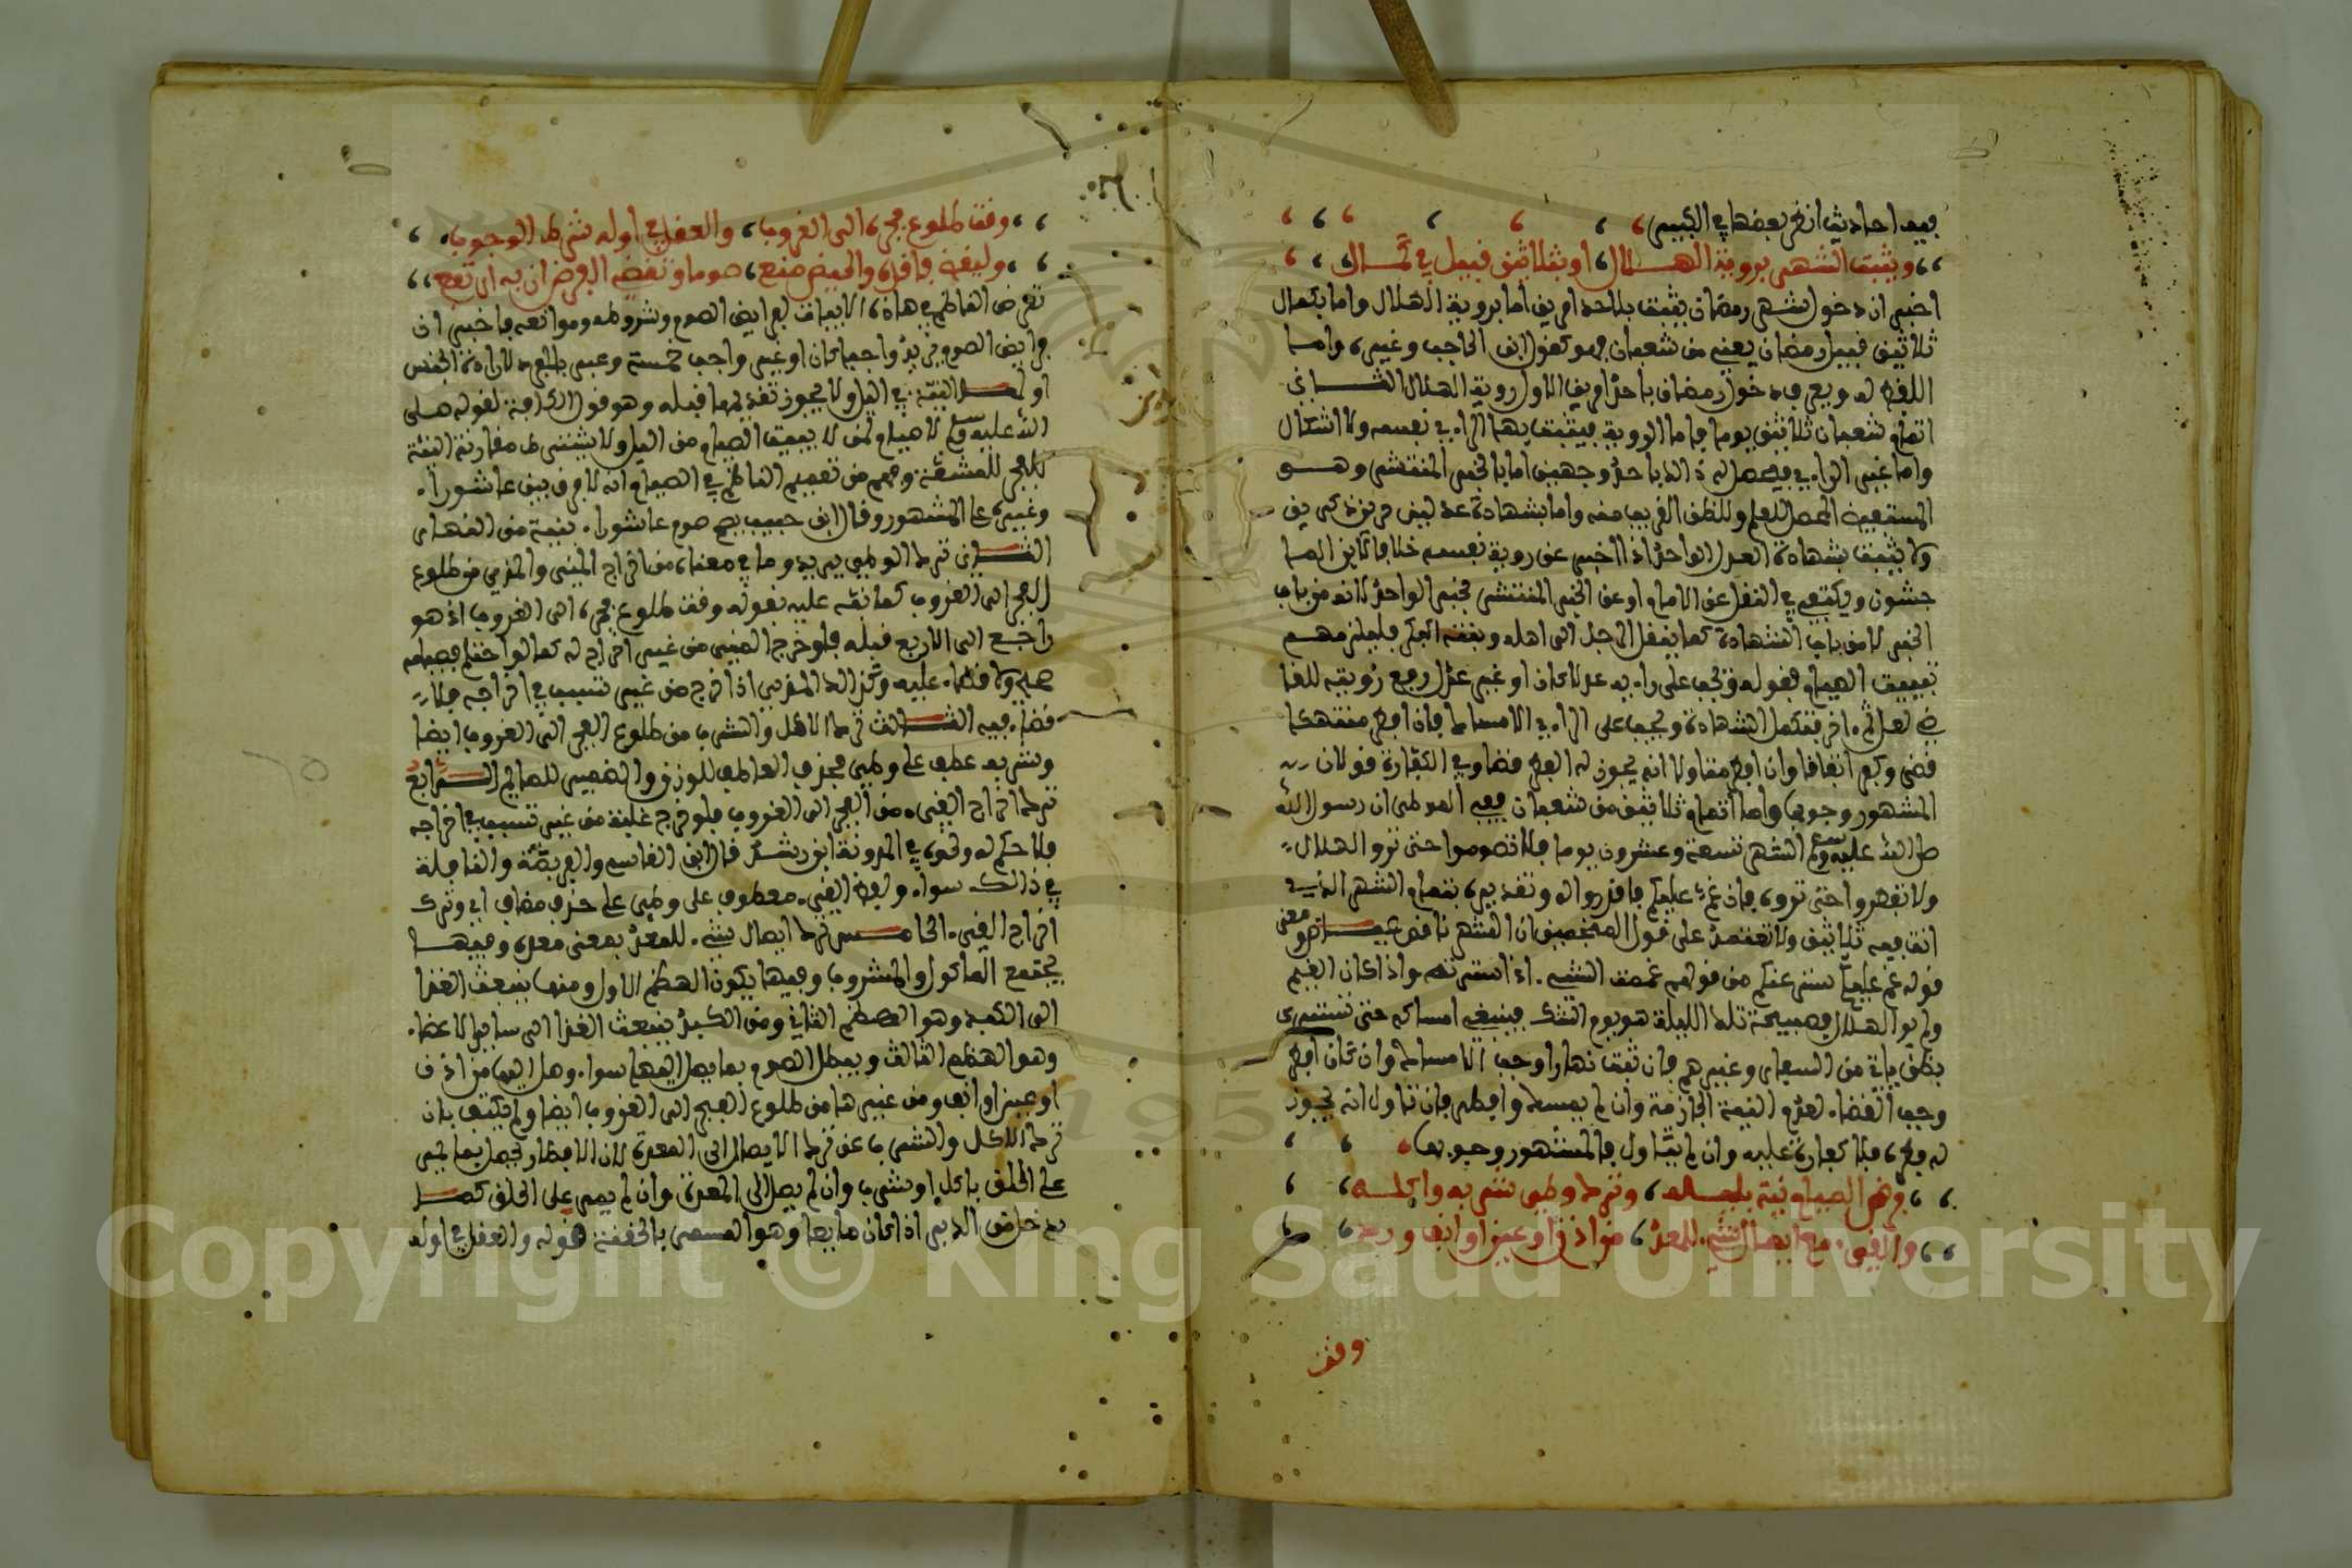 فيه احاديث انظر بعضها في الكبير
ويثبت الشهر برؤية الهلال او بثلاثين قبيل في كمال
اخبر ان دخول شهر رمضان يثبت باحد امرين اما بروية الهلال واما بكمال
ثلاثين قبيل رمضان يعني من شعبان وهو كقول ابن الحاجب وغيره واما
اللفظ له ويعرف دخول رمضان باحد امرين الاول روية الهلال الثاني
اتمام شعبان ثلاثين يوما فاما الروية فيثبت بها الراءي نفسه ولا اشكال
واما غير الراءي فيحصل له ذالك باحد وجهين اما بالخبر المنتشر وهو
المستفيض المحصل للعلم وللظن القريب منه واما بشهادة عدلين حرين ذكرين
ولا يثبت بشهادة العدل الواحد اذا اخبر عن روية نفسه خلافا لابن الما
جشون ويكتفى في النقل عن الامام او عن الخبر المنتشر بخبر الواحد لانه من باب
الخبر لا من باب الشهادة كما ينقل الرجل الى اهله وبنته البكر فيلزمهم
تبييت الصيام بقوله ويجب على راءيه عدلا كان او غير عدل رفع رؤيته للقا
ضي لعل ثم ءاخر فتكمل الشهادة ويجب على الراءي الامساك فان افطر منتهكا
قضى وكفر اتفاقا وان افطر متاولا انه يجوز له الفطر قضى وفي الكفارة قولان
المشهور وجوبها واما اتمام ثلاثين من شعبان ففي الموطا ان رسول الله
صلى الله عليه وسلم الشهر تسعة وعشرون يوما فلا تصوموا حتى تروا الهلال
ولا تفطروا حتى تروه فان غم عليكم فاقدروا له وتقديره بتمام الشهر الذي
انت فيه ثلاثين ولا تعتمد على قول المنجمين ان الشهر ناقص معنى
قوله غم عليكم ستر عنكم من قولهم غممت الشيء اذا سترته واذا كان الغيم
ولم يروا الهلال فصبيحة تلك الليلة هو يوم الشك فينبغي امساكه حتى تستبرى
بظن ياتي من السفار وغيرهم فان ثبت نهارا وجب الامساك وان كان افطر
وجب القضاء لعدم النية الجازمة وان لم يمسك وافطر فان تاول انه يجوز
له فطره فلا كفارة عليه وان لم يتاول فالمشهور وجوبها
فرض الصيام نية بليله وترك وطء شربه واكله
والقيء مع ايصال شيء للمعد من اذن او عين او انف ورد
وقت
وقت طلوع فجره الى الغروب والعقل في اوله شرط الوجوب
وليقض فاقده والحيض منع صوما وتقضي الفرض ان به ارتفع
تعرض الناظم في هاذه الابيات لفرايض الصوم وشروطه وموانعه فاخبر ان
فرايض الصوم يريد واجبا كان او غير واجب خمسة وعبر بالفرض لارادة الجنس
اولها النية في الليل ولا يجوز تقديمها قبله وهو قول الكافة لقوله صلى
الله عليه وسلم لا صيام لمن لا يبيت الصيام من الليل ولا يشترط مقارنة النية
للفجر للمشقة وفهم من تعميم الناظم في الصيام انه لا فرق بين عاشوراء
وغيره على المشهور وقال ابن حبيب يصح صوم عاشوراء بنية من النهار
الثاني ترك الوطء يريد وما في معناه من اخراج المني والمذي من طلوع
الفجر الى الغروب كما نبه عليه بقوله وقت طلوع فجره الى الغروب اذ هو
راجع الى الاربع قبله فلو خرج المني من غير اخراج له كما لو احتلم فصيامه
صحيح ولا قضاء عليه وكذالك المذي اذا خرج من غير تسبب في اخراجه فلا
قضاء فيه الثالث ترك الاكل والشرب من طلوع الفجر الى الغروب ايضا
وشربه عطف على وطء بحذف العاطف للوزن والضمير للصايم الرابع
ترك اخراج القيء من الفجر الى الغروب فلو خرج غلبة من غير تسبب في اخراجه
فلا حكم له ونحوه في المدونة ابن رشد قال ابن القاسم والفريضة والنافلة
في ذالك سواء ولفظ القيء معطوف على وطء على حذف مضاف اي وترك
اخراج القيء الخامس ترك ايصال شيء للمعد بمعنى معدة وفيها
يجتمع الماكول والمشروب وفيها يكون الهضم الاول ومنها ينبعث الغذا
الى الكبد وهو الهضم الثاني ومن الكبد ينبعث الغذا الى ساير الاعضاء
وهو الهضم الثالث ويبطل الصوم بما يصل اليها سواء وصل اليها من اذن
او عين او انف ومن غيرها من طلوع الفجر الى الغروب ايضا ولم يكتف بان
ترك الاكل والشرب عن ترك الايصال الى المعدة لان الافطار يحصل بما يمر
على الحلق باكل او شرب وان لم يصل الى المعدة وان لم يمر على الحلق كما
يدخل من الدبر اذا كان مايعا وهو المسمى بالحقنة قوله والعقل في اوله
Copyright © King Saud University
1957